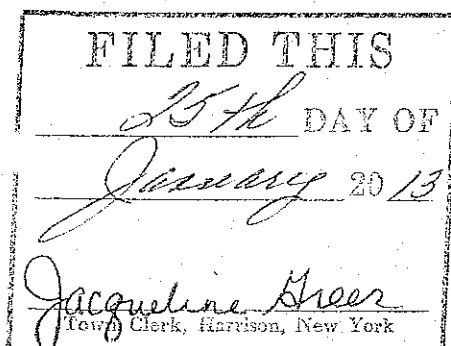 FILED THIS
25th DAY OF
January 20 13
Jacqueline Greer
Town Clerk, Harrison, New York